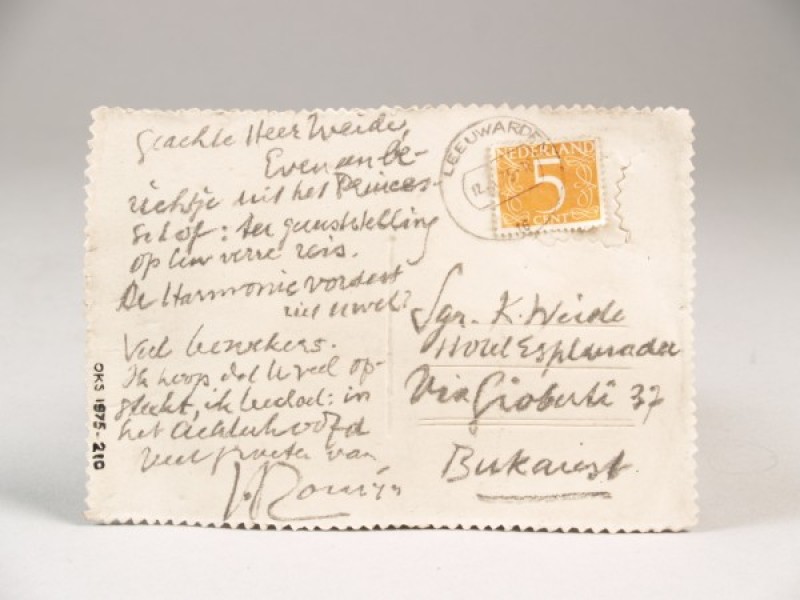 Geachte Heer Weide,
Even een be-
richtje uit het Princes-
sehof: ter geruststelling
op Uw verre reis.
De Harmonie vordert
niet
Veel bezoekers.
Ik hoop dat U veel op-
steekt, ik bedoel: in
het achterhoofd
veel groeten van
LEEUWARDEN
NEDERLAND
5
CENT
Sgr. K. Weide
Hotel Esplanade
Via Gioberti 37
Bukarest
OKS 1975-210